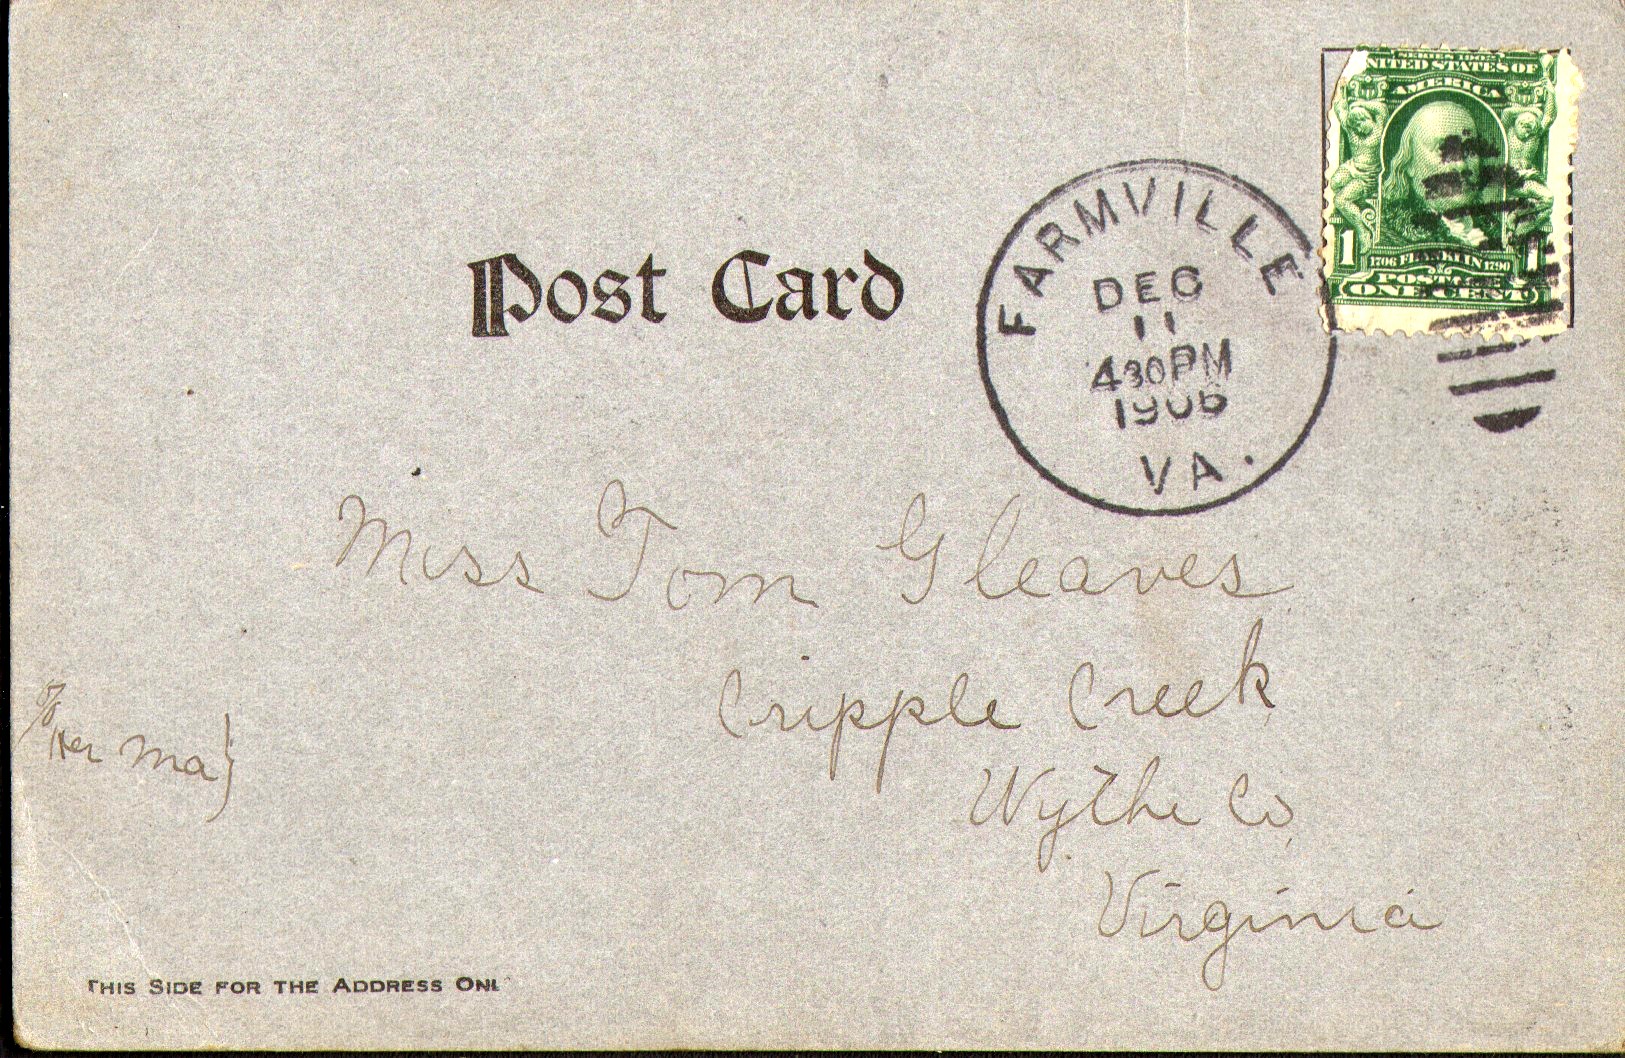 SERIES 1902
UNITED STATES OF
AMERICA
1 1
1706 FRANKLIN 1790
POSTAGE
ONE CENT
FARMVILLE
DEC
11
430PM
1906
VA.
Post Card
Miss Tom Gleaves
Cripple Creek
Wythe Co
Virginia
To
Her Ma}
THIS SIDE FOR THE ADDRESS ONL